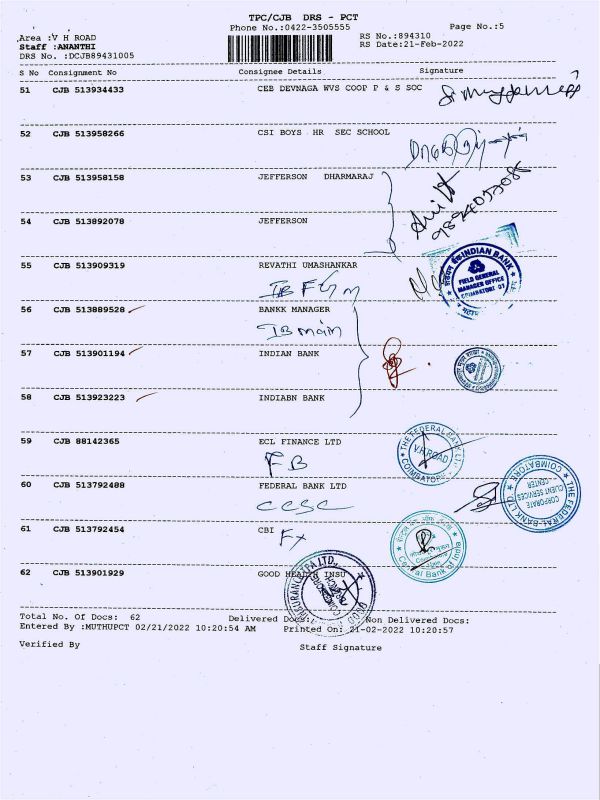 TPC/CJB DRS - PCT
Phone No.:0422-3505555 Page No.:5
Area :V H ROAD RS No.:894310
Staff :ANANTHI RS Date:21-Feb-2022
DRS No. :DCJB89431005
S No Consignment No Consignee Details Signature
51 CJB 513934433 CEB DEVNAGA WVS COOP P & S SOC
52 CJB 513958266 CSI BOYS HR SEC SCHOOL
53 CJB 513958158 JEFFERSON DHARMARAJ
54 CJB 513892078 JEFFERSON
55 CJB 513909319 REVATHI UMASHANKAR
INDIAN BANK
FIELD GENERAL
MANAGER OFFICE
COIMBATORE 01
56 CJB 513889528 BANKK MANAGER
IB main
57 CJB 513901194 INDIAN BANK
58 CJB 513923223 INDIABN BANK
59 CJB 88142365 ECL FINANCE LTD
THE FEDERAL BANK LTD
V.H.ROAD
COIMBATORE
FB
60 CJB 513792488 FEDERAL BANK LTD
THE FEDERAL BANK LTD.
CORPORATE
CLIENT SERVICES
CENTER
COIMBATORE
CCSC
61 CJB 513792454 CBI
Fx
Central Bank of India
62 CJB 513901929 GOOD HEALTH INSU
Total No. Of Docs: 62 Delivered Docs: Non Delivered Docs:
Entered By :MUTHUPCT 02/21/2022 10:20:54 AM Printed On: 21-02-2022 10:20:57
Verified By Staff Signature